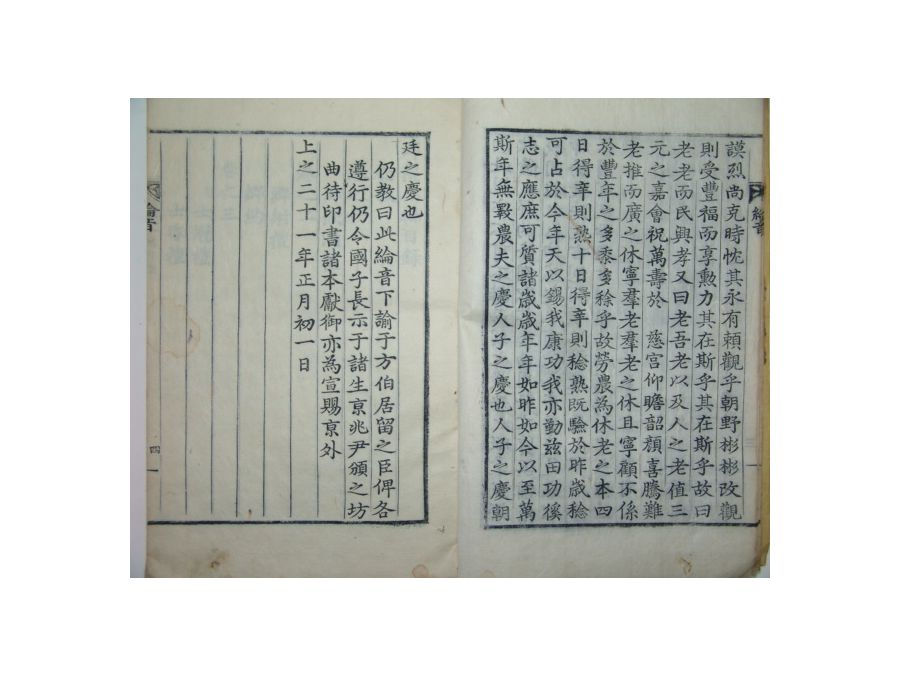 謨烈尚克時忱其永有賴觀乎朝野彬彬改觀
則受豐福而享勲力其在斯乎其在斯乎故曰
老老而民興孝又曰老吾老以及人之老值三
元之嘉會祝萬壽於 慈宮仰瞻韶顏喜騰難
老推而廣之休寧羣老羣老之休且寧顧不係
於豐年之多黍多稌乎故勞農為休老之本四
日得辛則熟十日得辛則稔熟既驗於昨歲稔
可占於今年天以錫我康功我亦勤玆田功徯
志之應庶可質諸歲歲年年如昨如今以至萬
斯年無斁農夫之慶人子之慶也人子之慶朝
綸音
廷之慶也
仍教曰此綸音下諭于方伯居留之臣俾各
遵行仍令國子長示于諸生京兆尹頒之坊
曲待印書諸本獻御亦為宣賜京外
上之二十一年正月初一日
綸音
四